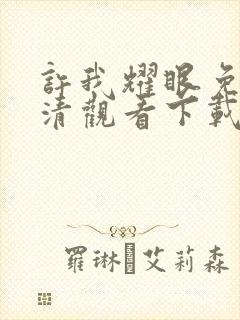 許我耀眼免
清觀看下載
羅琳·艾莉森